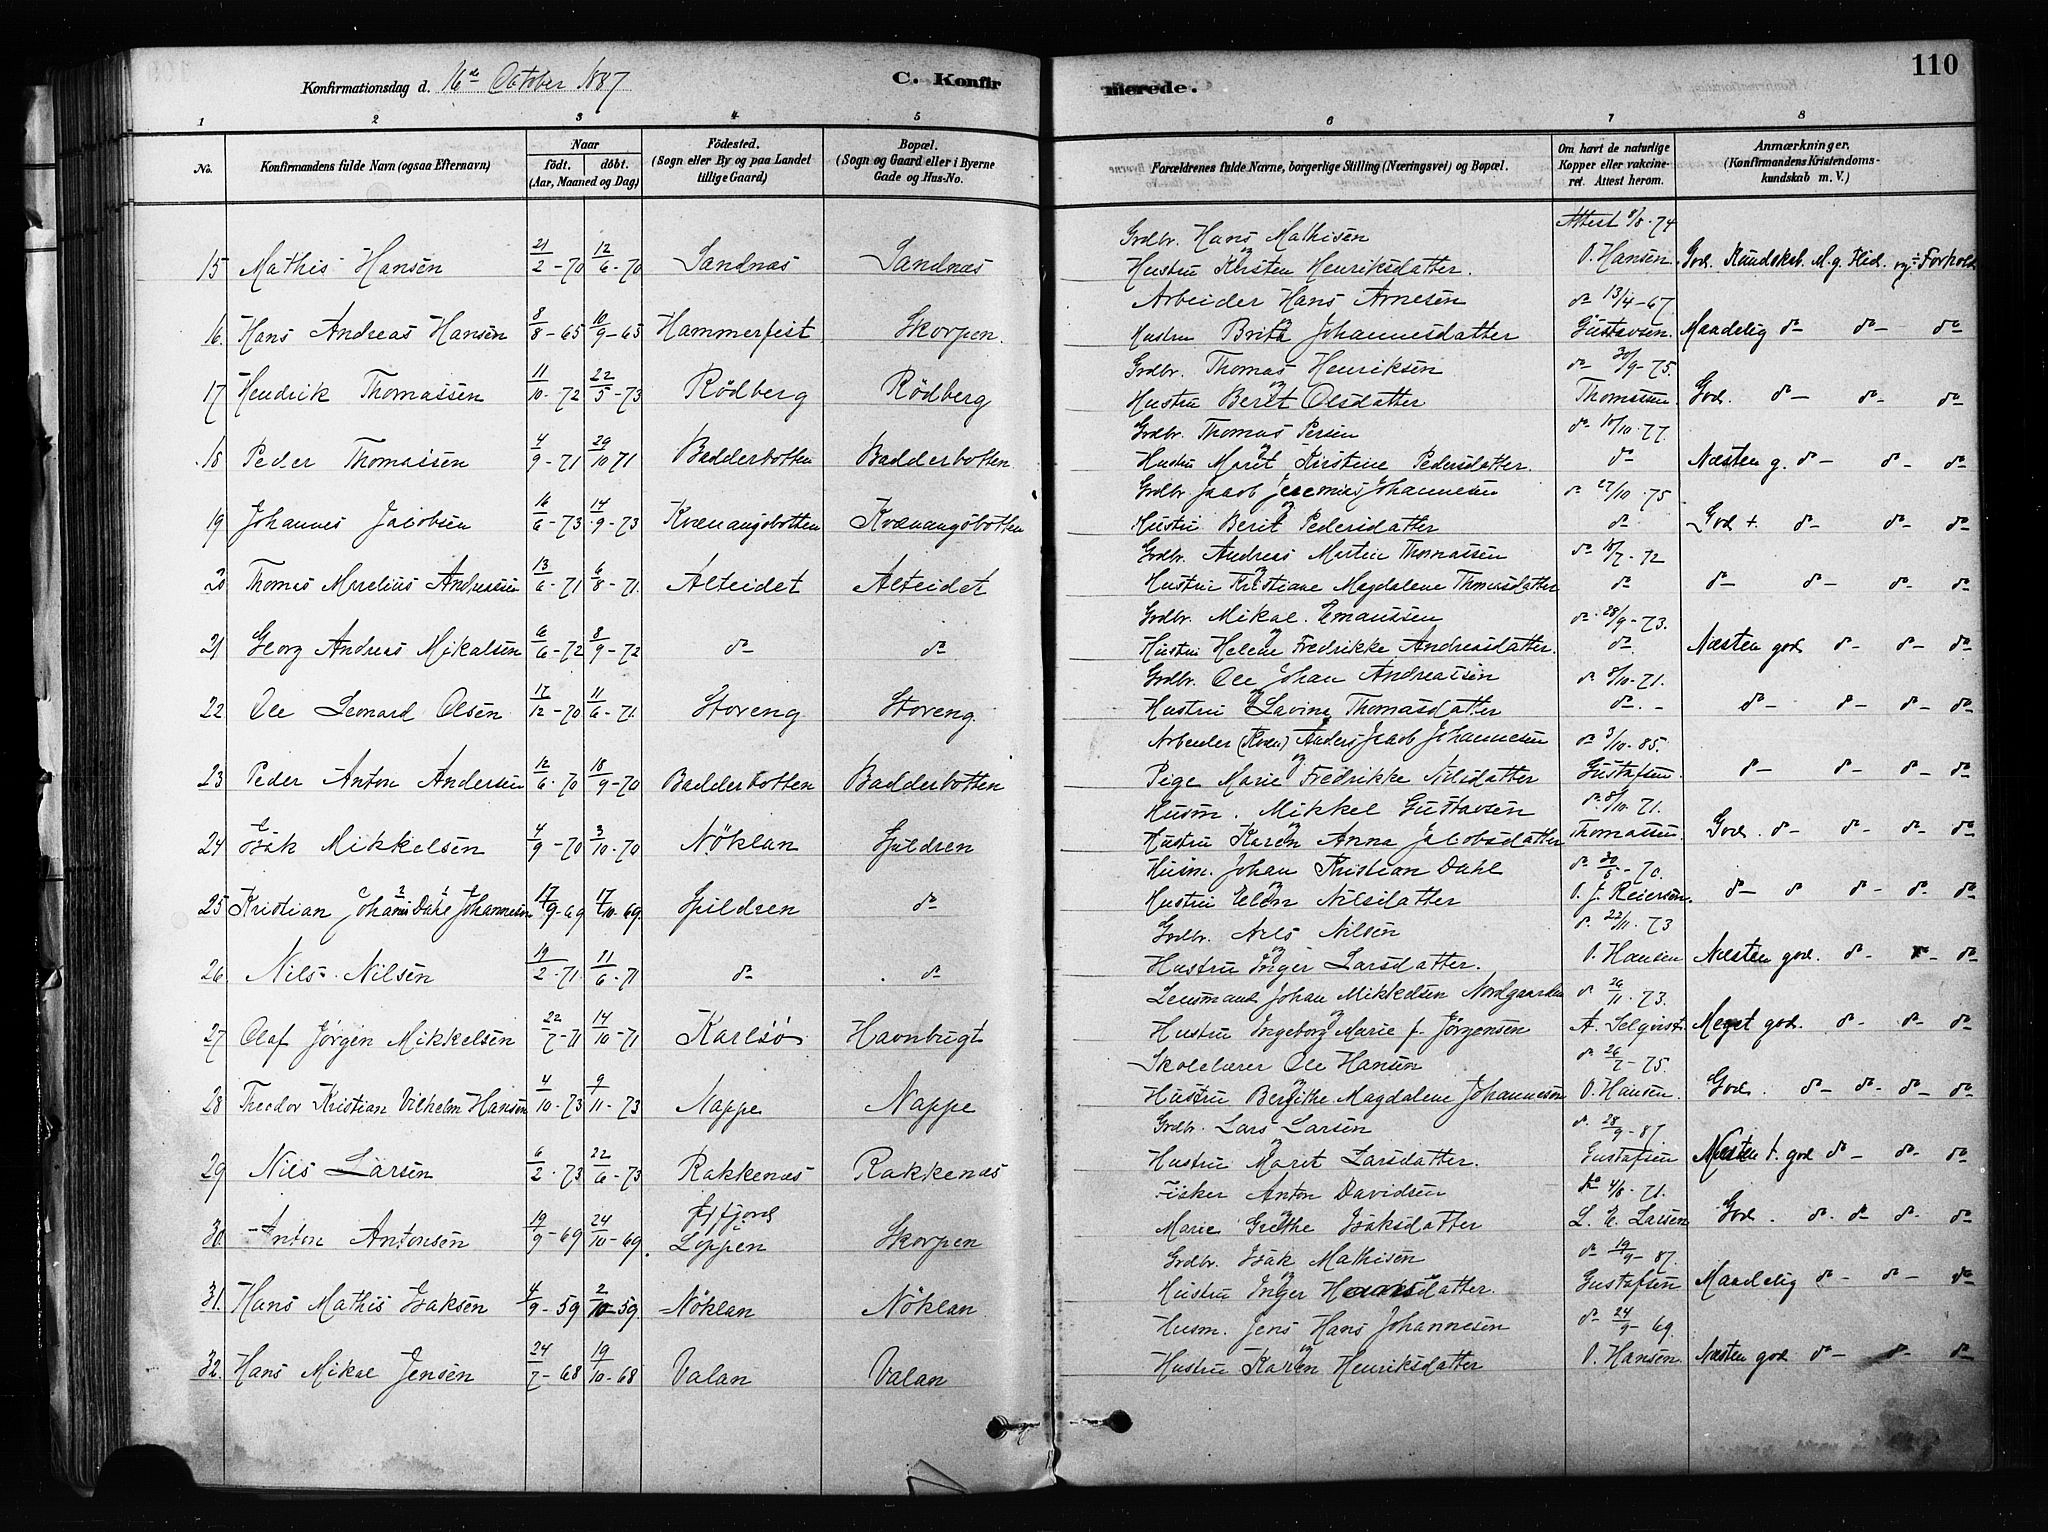 Konfirmationsdag d. 16de October 1887
C. Konfirmerede.
110
1 2 3 4 5 6 7 8
No. Konfirmandens fulde Navn (ogsaa Efternavn) Naar født. døbt. (Aar, Maaned og Dag) Fødested. (Sogn eller By og paa Landet tillige Gaard) Bopæl. (Sogn og Gaard eller i Byerne Gade og Hus-No. Forældrenes fulde Navne, borgerlige Stilling (Næringsvei) og Bopæl. Om havt de naturlige Kopper eller vakcineret. Attest herom. Anmærkninger. (Konfirmandens Kristendomskundskab m. V.)
Grdbr. Hans Mathisen Attest 8/8-74
15 Mathis Hansen 21/2-70 12/6-70 Sandnæs Sandnæs Hustru Kirsten Henriksdatter. O. Hansen. God. Kundskab. M. g. Flid. og Forhold
Arbeider Hans Arnesen do 13/4-67
16. Hans Andreas Hansen 8/8-65 10/9-65 Hammerfest Skorpen. Hustru Brita Johannesdatter Gustavsen. Maadelig do do do
Grdbr. Thomas Henriksen do 30/9-75.
17 Hendrik Thomassen 11/10-72 22/5-73 Rødberg Rødberg Hustru Berit Olsdatter Thomassen God. do do do
Grdbr. Thomas Persen do 10/10-77.
18 Peder Thomassen 4/9-71 29/10 71 Badderbotten Badderbotten. Hustru Marit Kirstine Pedersdatter. do Næsten g. do do do
Grdbr. Jacob Jeremias Johannesen do 27/10-75
19 Johannes Jacobsen 16/6-73 14/9-73 Kvænangsbotten Kvænangsbotten Hustru Berit Pedersdatter do God +. do do do
Grdbr. Andreas Martin Thomassen do 18/7-72
20 Thomas Marelius Andreassen 13/6-71 6/8-71. Alteidet Alteidet Hustru Kristiane Magdalene Thomasdatter do do do do do
Grdbr. Mikal Emaussen do 28/9-73.
21 Georg Andreas Mikalsen 6/6-72 8/9-72 do do Hustru Helene Fredrikke Andreasdatter. do Næsten god do do do
Grdbr. Ole Johan Andreassen do 8/10-71.
22 Ole Leonard Olsen 17/12-70 11/6-71. Storeng Storeng Hustru Lavina Thomasdatter do do do do do
Arbeider (Kvæn) Anders Jacob Johannesen do 3/10-85.
23 Peder Anton Andersen 12/6-70 18/9-70 Badderbotten Badderbotten Pige Marie Fredrikke Nilsdatter Gustafsen. do do do do
Husm. Mikkel Gustavsen do 8/10-71.
24 Isak Mikkelsen 4/9-70 3/10-70 Nøklan Spildren Hustru Karen Anna Jacobsdatter Thomassen. God. do do do do
Husm. Johan Kristian Dahl do 30/5-70.
25 Kristian Johannesen 17/9-69 17/10-69. Spildren do Hustru Elen Nilsdatter O. J. Reiersen. do do do do do
Grdbr. Nils Nilsen do 22/11-73
26. Nils Nilsen 19/2-71. 11/6-71 do do Hustru Inger Larsdatter. O. Hansen Næsten god. do do do
Lensmand Johan Mikkelsen Nordgaarden do 26/11-73.
27 Olaf Jørgen Mikkelsen 22/7-71 14/10-71 Karlsø Havnbugt Hustru Ingeborg Marie f. Jørgensen A. Selqvist. Meget god. do do do
Skolelærer Ole Hansen do 26/7-75.
28 Theodor Kristian Vilhelm Hansen 4/10-73 9/11-73 Nappe Nappe Hustru Bergithe Magdalene Johannesen O. Hansen. God. do do do do
Grdbr. Lars Larsen do 28/9-87
29 Nils Larsen 6/2-73 22/6-73 Rakkenæs Rakkenæs Hustru Marit Larsdatter. Gustafsen Næsten +. god do do do
Fisker Anton Davidsen do 4/8-71.
30 Anton Antonsen 19/9-69 24/10-69. Løppen Skorpen Marie Grethe Isaksdatter L. E. Larsen God. do do do do
Grdbr. Isak Mathisen do 19/9-87.
31. Hans Mathis Isaksen 4/9-59 2/10-59. Nøklan Nøklan Hustru Inger Hansdatter. Gustafsen Maadelig do do do
Husm. Jens Hans Johannesen do 24/9-69.
32. Hans Mikal Jensen 24/7-68 19/10-68 Valan Valan Hustru Karen Henriksdatter O. Hansen. Næsten god do do do